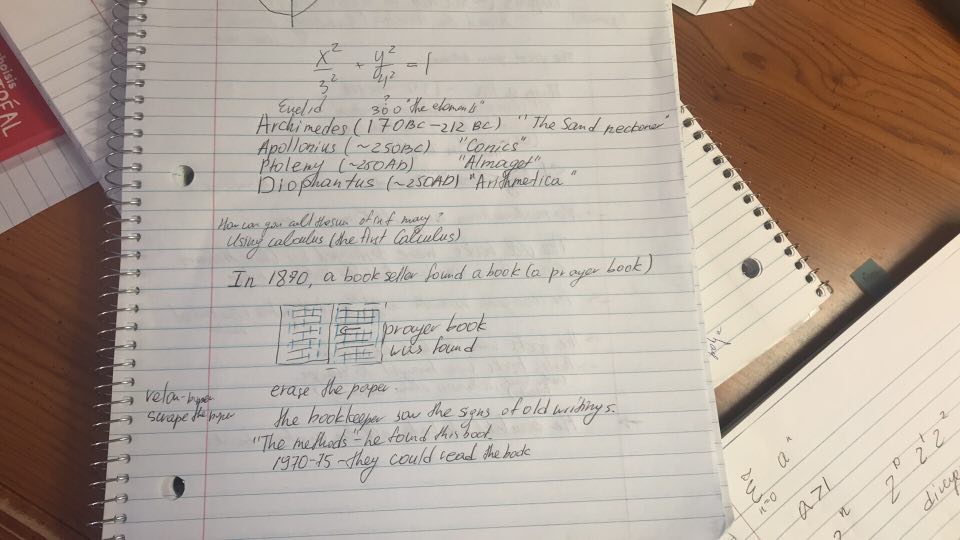 x² / 3² + y² / 4² = 1
Euclid 300 "the elements"
Archimedes (170BC-212BC) "The Sand reckoner"
Apollonius (~250BC) "Conics"
Ptolemy (~250AD) "Almaget"
Diophantus (~250AD) "Arithmetica"
How can you add the sum of inf many?
Using calculus (the first Calculus)
In 1890, a book seller found a book (a prayer book)
prayer book
was found
erase the paper.
scrape the
the bookkeeper saw the signs of old writings.
"The methods" - he found this book
1970-75 - they could read the book
choisis
n=0
aⁿ
a>1
2ⁿ
2⁰ 2¹ 2²